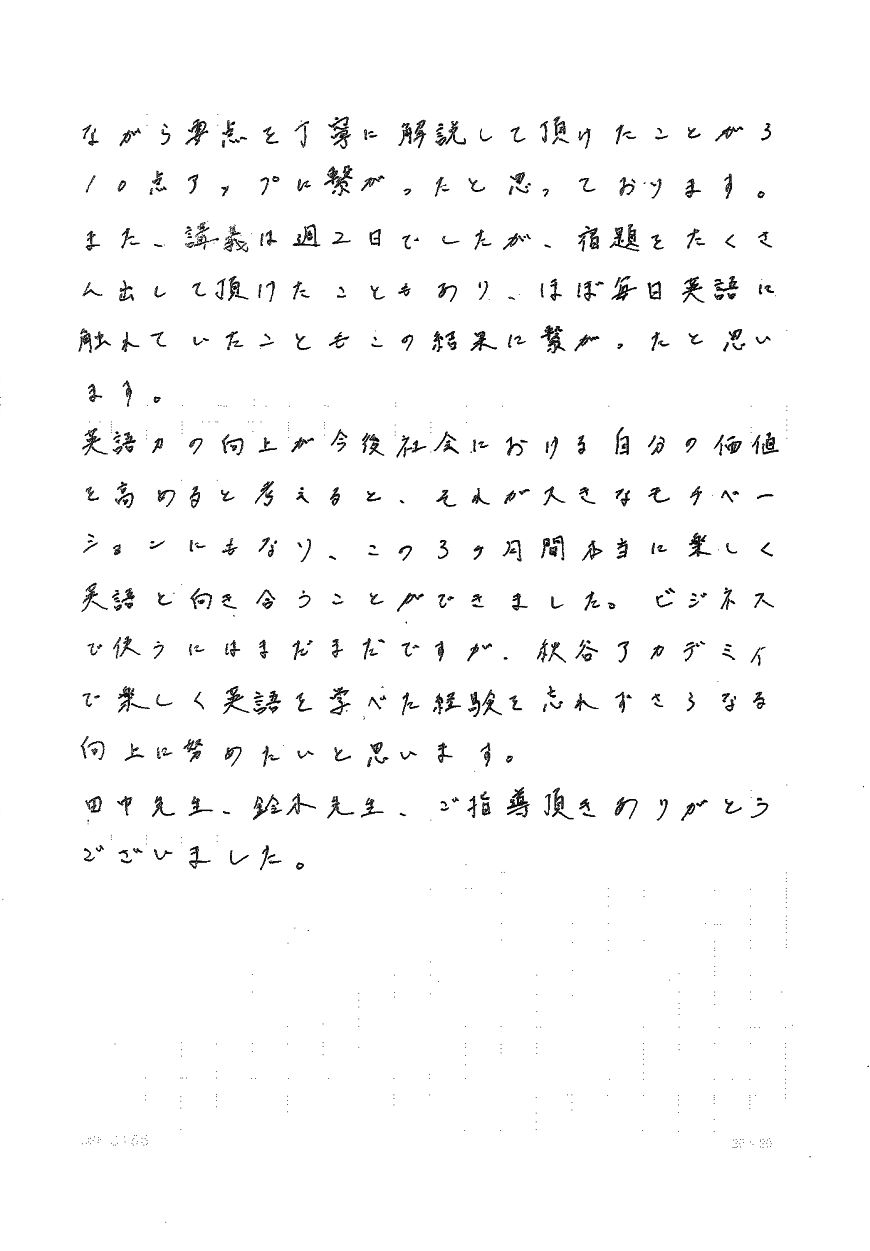 ながら要点を丁寧に解説して頂けたことが3
10点アップに繋がったと思っております。
また、講義は週2日でしたが、宿題をたくさ
ん出して頂けたこともあり、ほぼ毎日英語に
触れていたこともこの結果に繋がったと思い
ます。
英語力の向上が今後社会における自分の価値
を高めると考えると、それが大きなモチベー
ションにもなり、この3ヶ月間本当に楽しく
英語と向き合うことができました。ビジネス
で使うにはまだまだですが、秋谷アカデミィ
で楽しく英語を学べた経験を忘れずさらなる
向上に努めたいと思います。
田中先生、鈴木先生、ご指導頂きありがとう
ございました。